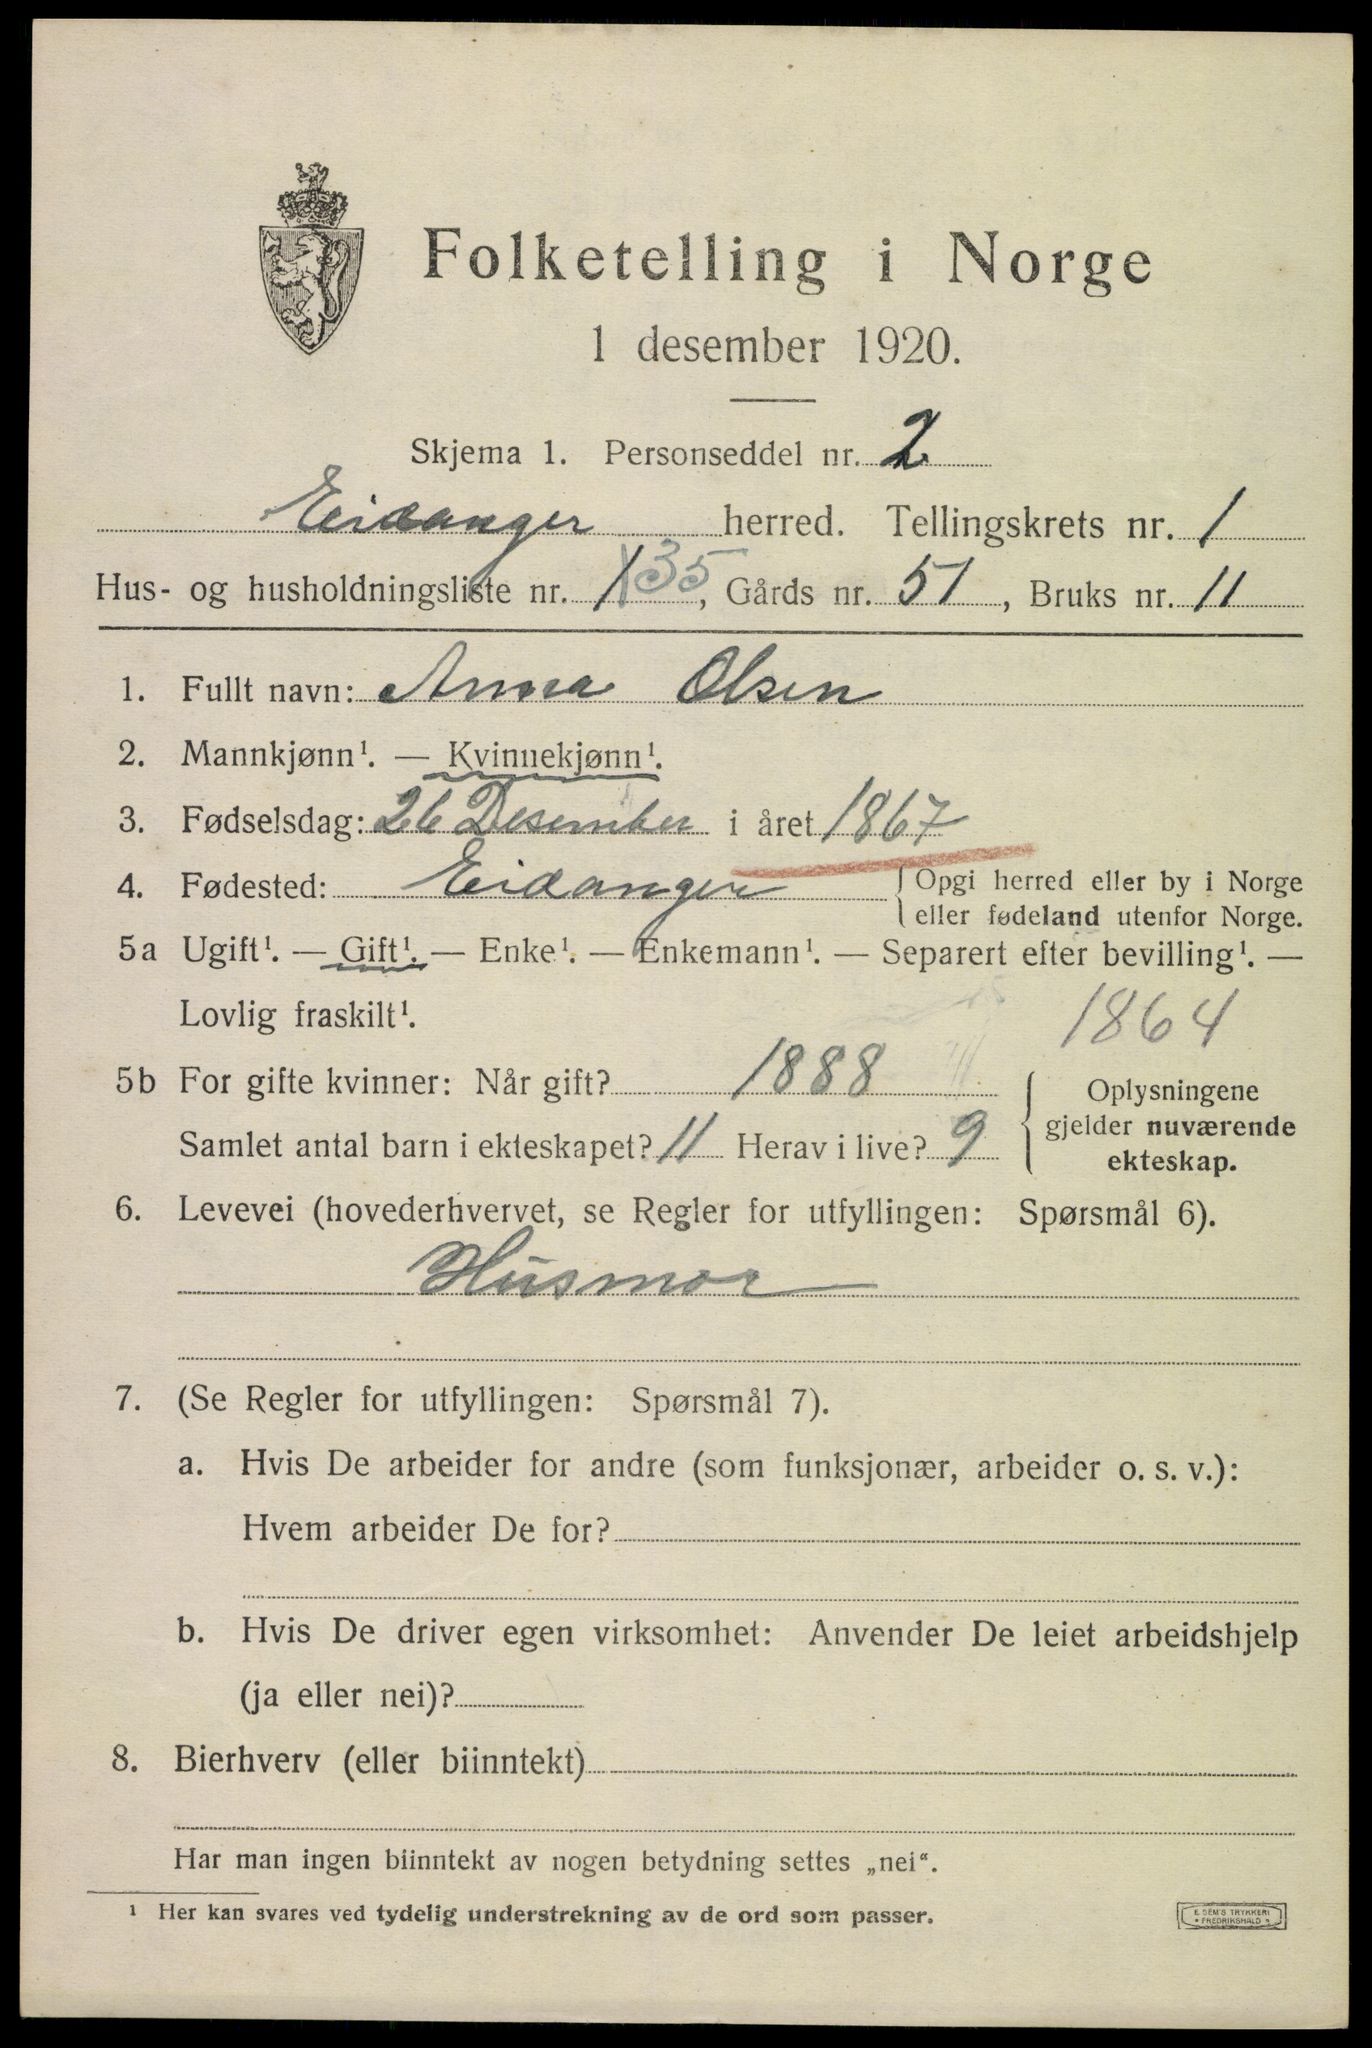 Folketelling i Norge
1 desember 1920.
Skjema 1. Personseddel nr. 2
Eidanger herred. Tellingskrets nr. 1
Hus- og husholdningsliste nr. 1 35, Gårds nr. 51, Bruks nr. 11
1. Fullt navn: Anna Olsen
2. Mannkjønn¹. — Kvinnekjønn¹.
3. Fødselsdag: 26 Desember i året 1867
4. Fødested: Eidanger { Opgi herred eller by i Norge
eller fødeland utenfor Norge.
5a Ugift¹. — Gift¹. — Enke¹. — Enkemann¹. — Separert efter bevilling¹. —
Lovlig fraskilt¹.
1864
5b For gifte kvinner: Når gift? 1888
Samlet antal barn i ekteskapet? 11 Herav i live? 9
Oplysningene
gjelder nuværende
ekteskap.
6. Levevei (hovederhvervet, se Regler for utfyllingen: Spørsmål 6).
Husmor
7. (Se Regler for utfyllingen: Spørsmål 7).
a. Hvis De arbeider for andre (som funksjonær, arbeider o. s. v.):
Hvem arbeider De for?
b. Hvis De driver egen virksomhet: Anvender De leiet arbeidshjelp
(ja eller nei)?
8. Bierhverv (eller biinntekt)
Har man ingen biinntekt av nogen betydning settes „nei“.
¹ Her kan svares ved tydelig understrekning av de ord som passer.
E. SEM'S TRYKKERI
FREDRIKSHALD